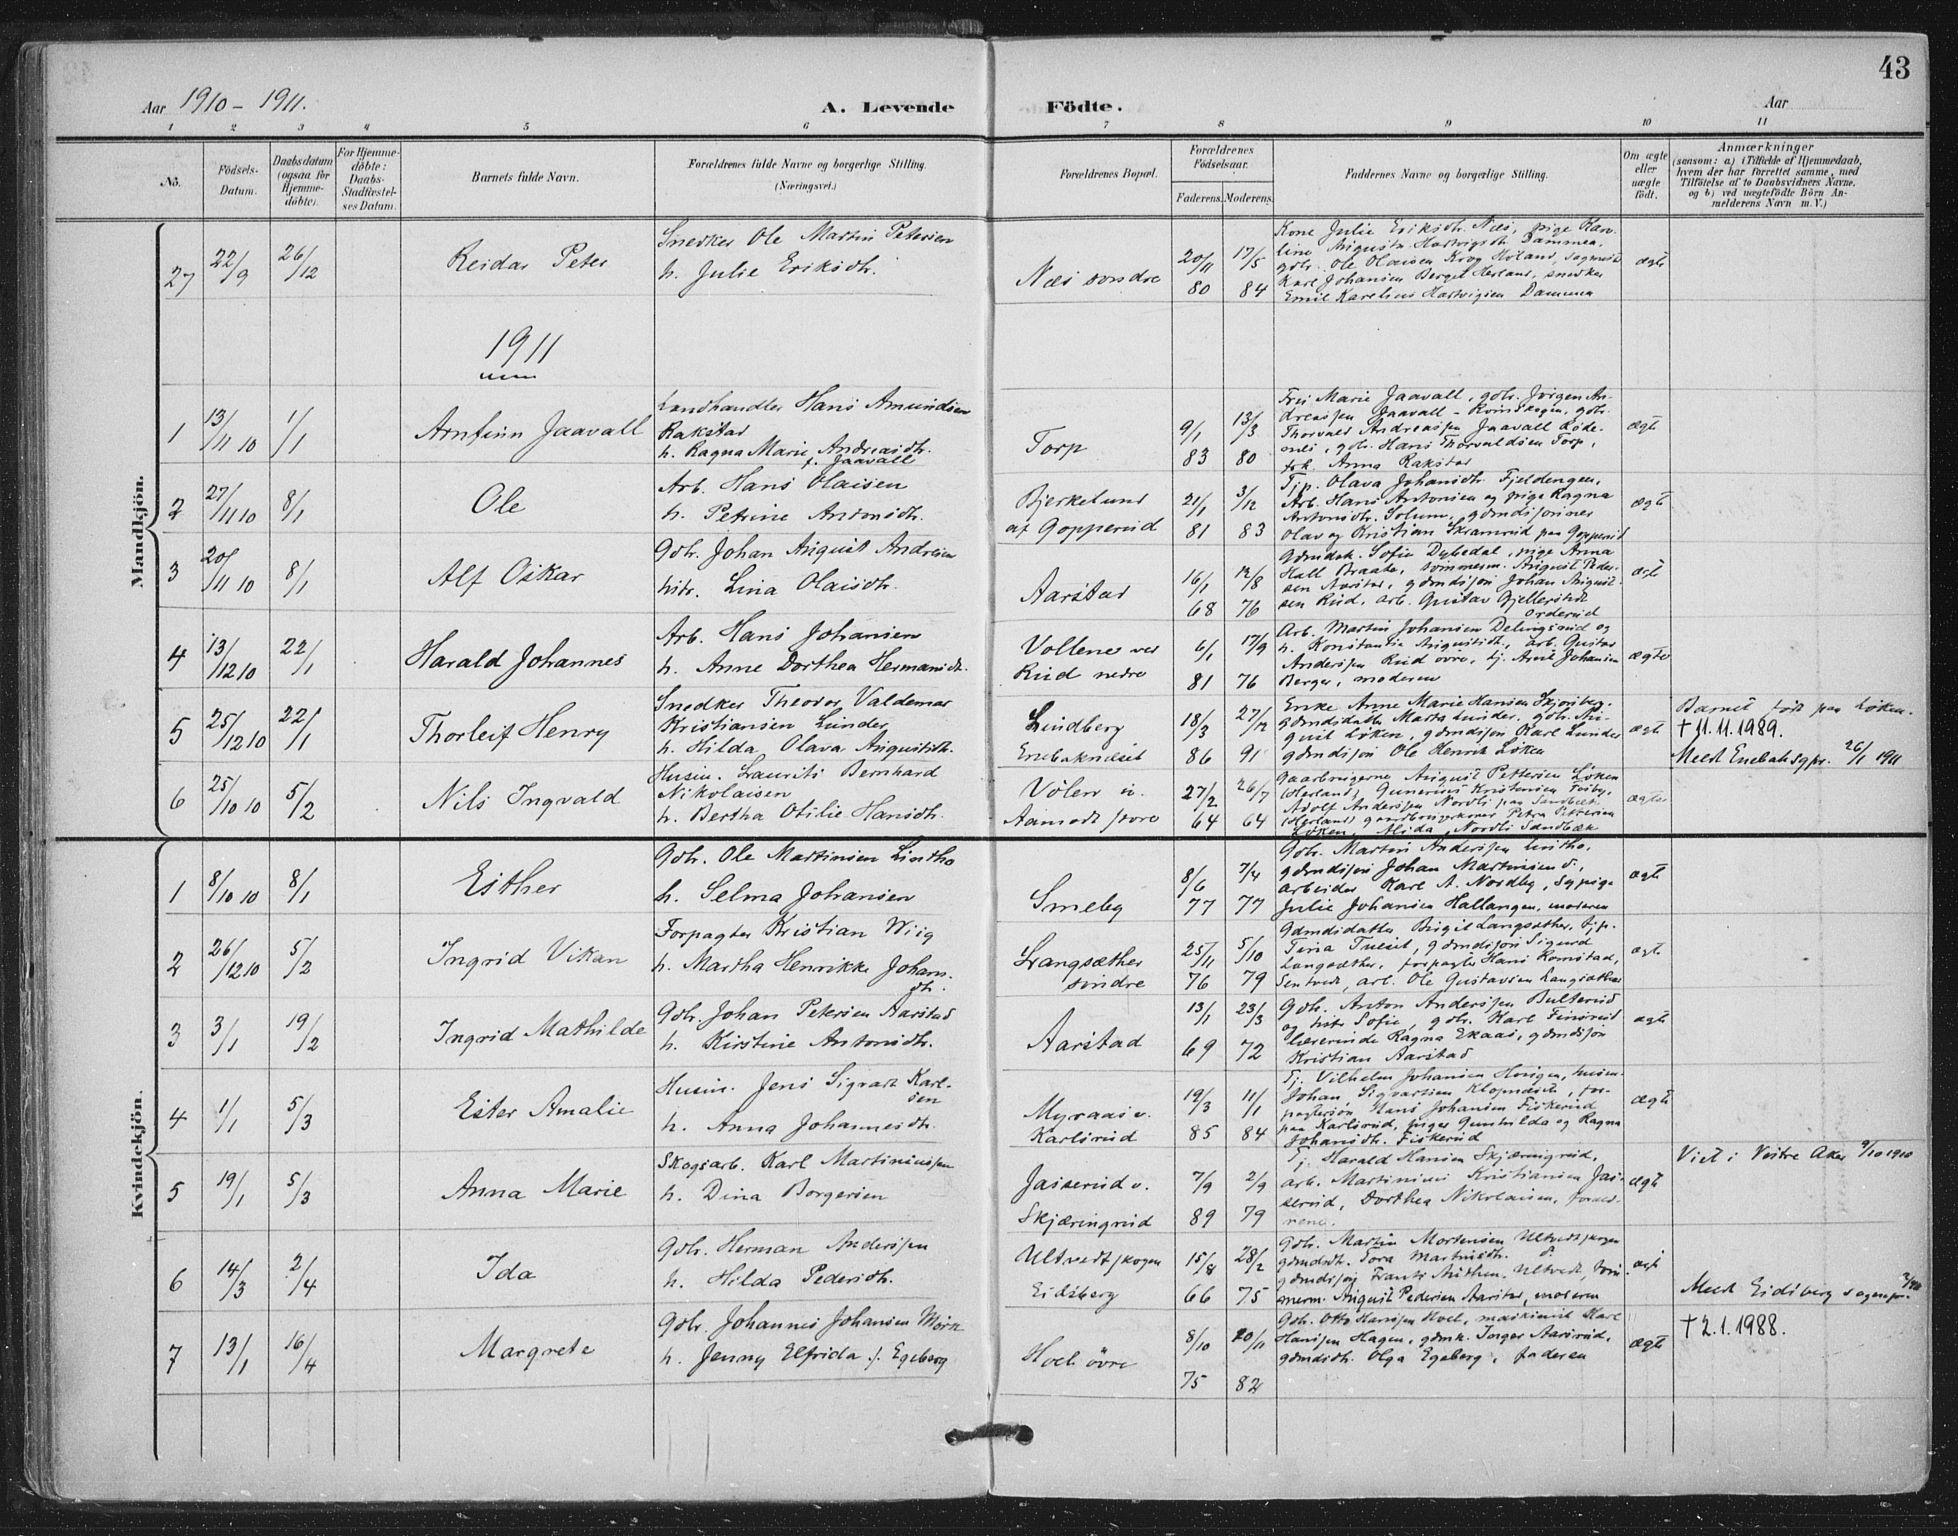 43
Aar 1910 – 1911.
A. Levende Födte.
Aar
1 2 3 4 5 6 7 8 9 10 11
No.
Födsels-Datum.
Daabsdatum (ogsaa for Hjemme-döbte).
For Hjemme-döbte: Daabs-Stadfæstel-ses Datum.
Barnets fulde Navn.
Forældrenes fulde Navne og borgerlige Stilling. (Næringsvei.)
Forældrenes Bopæl.
Forældrenes Födselsaar.
Faderens. Moderens.
Faddernes Navne og borgerlige Stilling.
Om ægte eller uægte födt.
Anmærkninger
(saasom: a) i Tilfælde af Hjemmedaab,
hvem der har forrettet samme, med
Tilföielse af to Daabsvidners Navne,
og b) ved uægtefödte Börn An-
melderens Navn m. V.)
Mandkjön.
27 22/9 26/12 Reidar Peter
Snedker Ole Martin Petersen
h. Julie Eriksdtr.
Næs søndre
20/11 80 17/5 84
Kone Julie Eriksdtr. Næs, pige Kar-
line Augusta Hartvigsdt. Dammen,
gdbr. Ole Olaisen Krog Høland,
Karl Johansen Berger Herland, snedker
Emil Karelius Hartvigsen Dammen
ægte
1911
1 13/11 10 1/1 Arnfinn Jaavall
Landhandler Hans Amundsen
Rakstad
h. Ragna Marie Andreasdtr.
f. Jaavall
Torp
9/1 83 13/3 80
Fru Marie Jaavall, gdbr. Jørgen An-
dreassen Jaavall – gdbr.
Thorvald Andreassen Jaavall Øde-
nes, gdbr. Hans Thorvaldsen Torp,
frk. Anna Rakstad
ægte
2 27/11 10 8/1 Ole
Arb. Hans Olaisen
h. Petrine Antonsdtr.
Bjerkelund
af Gopperud
21/1 81 3/12 83
Tjp. Olava Johansdtr. Fjeldengen,
Arb. Hans Antonsen og pige Ragna
Antonsdtr. Solum, gdmdssønner
Olav og Kristian Skramrud paa Gopperud
ægte
3 20/11 10 8/1 Alf Oskar
Gdbr. Johan August Andersen
hstr. Lina Olaisdtr.
Aarstad
16/1 68 12/8 76
Gdmdsk. Sofie Dybedal, pige Anna
Hall Braate, tømmerm. August Peder-
sen Aarstad, gdmdssøn Johan August-
sen Rud, arb. Gustav Gjellerstedt
Orderud
ægte
4 13/12 10 22/1 Harald Johannes
Arb. Hans Johansen
h. Anne Dorthea Hermansdt.
Vollene ved
Rud nedre
6/1 81 17/9 76
Arb. Martin Johansen Delingsrud og
h. Konstanse Augustsdt., arb. Gustav
Anderssen Rud øvre, tj. Arne Johansen
Berger, moderen
ægte
5 25/12 10 22/1 Thorleif Henry
Snedker Theodor Valdemar
Kristiansen Lunder
h. Hilda Olava Augustsdtr.
Lundberg
Enebaknæset
18/3 86 27/12 91
Enke Anne Marie Hansen Skjønberg,
gdmdsdatter Marta Lunder, gdbr. Au-
gust Løken, gdmdssøn Karl Lunder
gdmdssøn Ole Henrik Løken
ægte
Barnet født paa Løken.
† 11.11.1989.
Meldt Enebak sgpr. 26/1 1911
6 25/10 10 5/2 Nils Ingvald
Husm. Laurits Bernhard
Nikolaisen
h. Bertha Otilie Hansdtr.
Vølen u.
Aamodt store
27/2 64 26/7 64
Gaardbrugerne August Pettersen Løken
(Herland), Gunerius Kristensen Fosby,
Adolf Anderssen Nordli paa Sandbæk
(Herland), gaardbrugerkoner Petra Pettersen
Løken, Alida Nordli Sandbæk
ægte
Kvindekjön.
1 8/10 10 8/1 Esther
Gdbr. Ole Martinsen Lintho
h. Selma Johansen
Smeby
8/6 77 7/4 77
Gdbr. Martin Anderssen Lintho,
gdmdssøn Johan Martinsen s.,
arbeider Karl A. Nordby, sypige
Julie Johansen Hallangen, moderen
ægte
2 26/12 10 5/2 Ingrid Vikan
Forpagter Kristian Wiig
h. Martha Henrikke Johans-
dt.
Langsæther
søndre
25/11 76 5/10 79
Gdmdsdatter Birgit Langsæther, tjp.
Tina Tveit, gdmdssøn Sigurd
Langsæther, forpagter Hans Romstad,
Sentvedt, arb. Ole Gustavsen Langsæther
ægte
3 3/1 19/2 Ingrid Mathilde
Gdbr. Johan Petersen Aarstad
h. Kirstine Antonsdtr.
Aarstad
13/1 69 23/3 72
Gdbr. Anton Anderssen Bulterud
og hstr Sofie, gdbr. Karl Finsrud
lærerinde Ragna Ekaas, gdmdssøn
Kristian Aarstad
ægte
4 1/1 5/3 Ester Amalie
Husm. Jens Sigvart Karl-
sen
h. Anna Johannesdtr.
Myraas u.
Karlsrud
19/3 85 11/1 84
Tj. Vilhelm Johansen Haugen, husm.
Johan Sigvartsen Klopmoen, for-
pagtersøn Hans Johansen Fiskerud
paa Karlsrud, piger Gunhilda og Ragna
Johansdtr. Fiskerud
ægte
5 19/1 5/3 Anna Marie
Skogsarb. Karl Martiniussen
h. Dina Borgersen
Jaiserud u.
Skjæringrud
7/9 89 2/9 79
Tj. Harald Hansen Skjæringrud,
arb. Martinius Kristiansen Jai-
serud, Dorthea Nikolaisen, foræld-
rene.
ægte
Viet i Vestre Aker 9/10 1910
6 14/3 2/4 Ida
Gdbr. Herman Anderssen
h. Hilda Pedersdtr.
Ultvedtskogen
Eidsberg
15/8 66 28/2 75
Gdbr. Martin Mortensen Ultvedtskogen
gdmdsdt. Tora Martinsdt. s.
gdmdssøn Frants Authen, Ultvedt, tøm-
merm. August Pedersen Aarstad, moderen
ægte
Meldt Eidsberg sognepr.
7 13/1 16/4 Margrete
Gdbr. Johannes Johansen Mørk
h. Jenny Elfrida f. Egeberg
Hoel øvre
8/10 75 20/11 82
Gdbr. Otto Hanssen Hoel, maskinist Karl
Hanssen Hagen, gdmk. Inger Aasrud,
gdmdsdt. Olga Egeberg, faderen
ægte
† 2.1.1988.